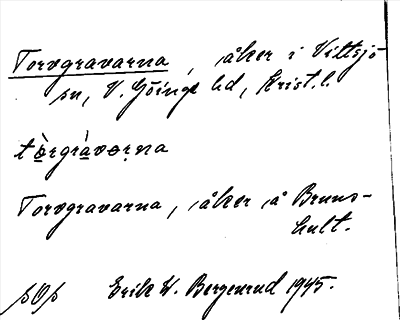 Torvgravarna, åker i Vittsjö
sn, V. Göinge hd, Krist. l.
tòrgràvoṛna
Torvgravarna, åker å Bruns-
hult.
pOp Erik W. Bergenrud 1945.